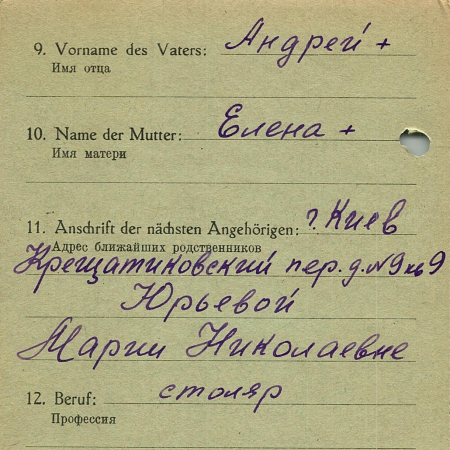 9. Vorname des Vaters: Андрей +
Имя отца
10. Name der Mutter: Елена +
Имя матери
11. Anschrift der nächsten Angehörigen: г. Киев
Адрес ближайших родственников
Крещатиковский пер. д. №9 кв 9
Юрьевой
Марии Николаевне
12. Beruf: столяр
Профессия